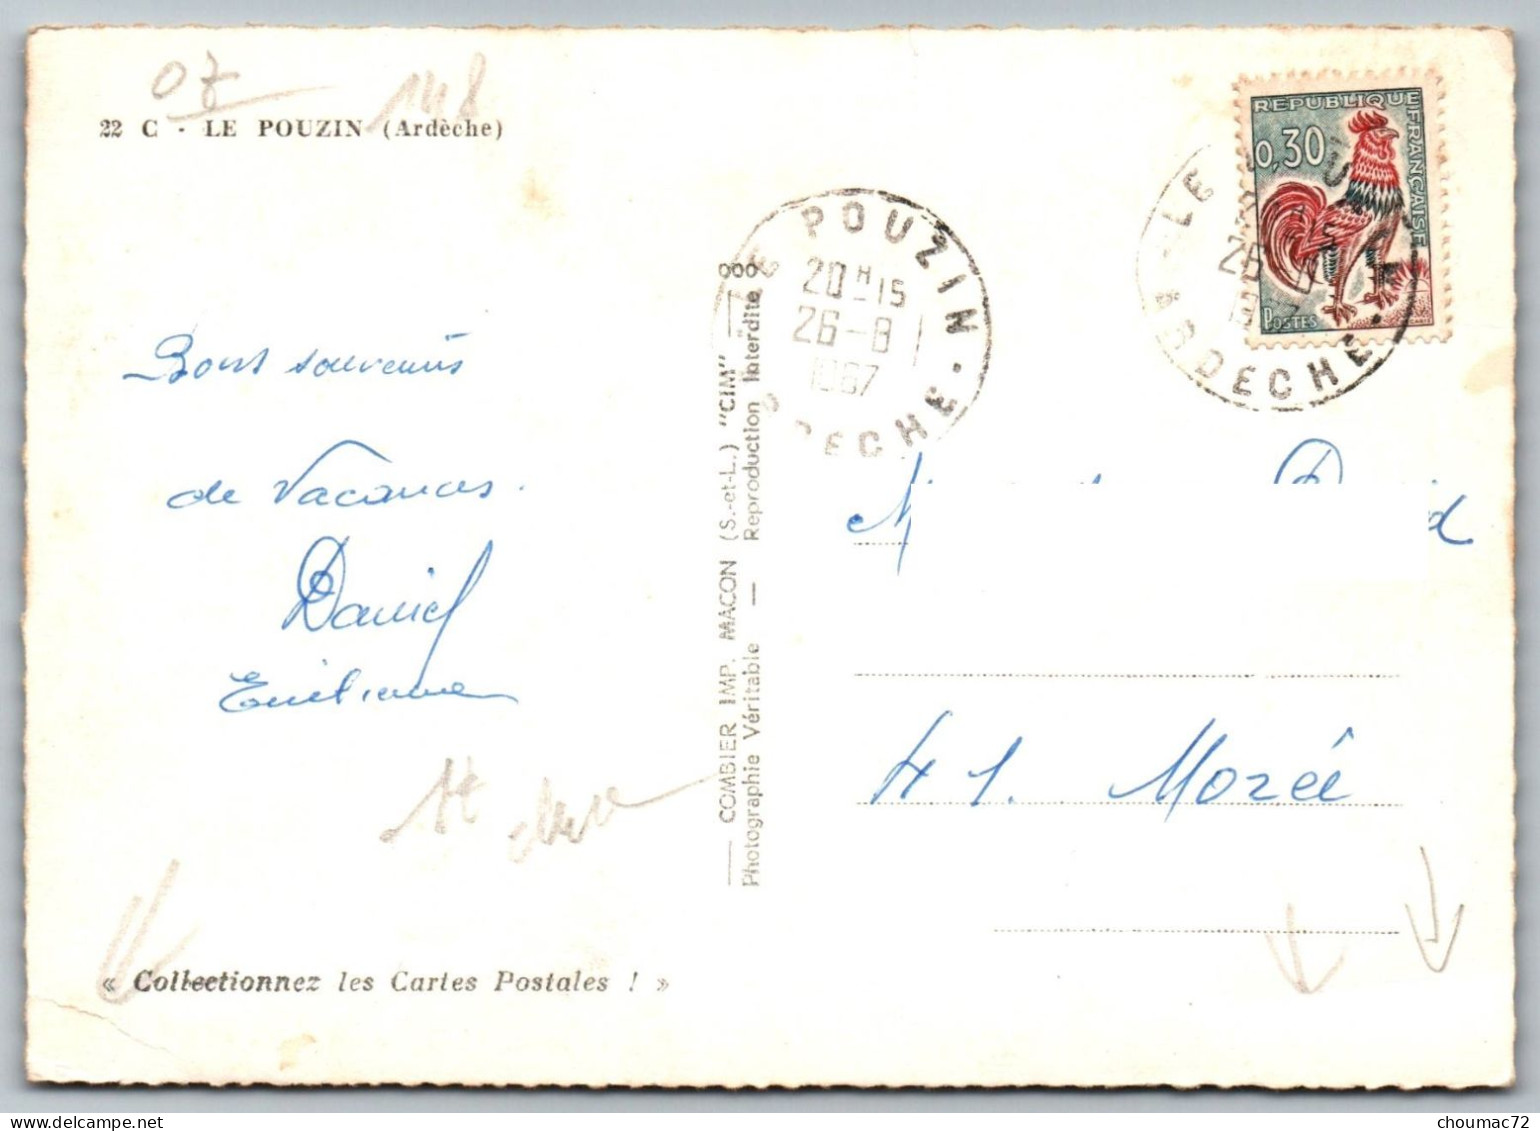 07 148
22 C - LE POUZIN (Ardèche)
REPUBLIQUE FRANÇAISE
0,30
POSTES
LE POUZIN
20H15
26-8
1967
ARDECHE
LE
26
1967
ARDECHE
Bons souvenirs
de Vacances.
Daniel
Emilienne
— COMBIER IMP. MACON (S.-et-L.) "CIM" —
Photographie Véritable — Reproduction Interdite
41. Morée
« Collectionnez les Cartes Postales ! »
choumac72